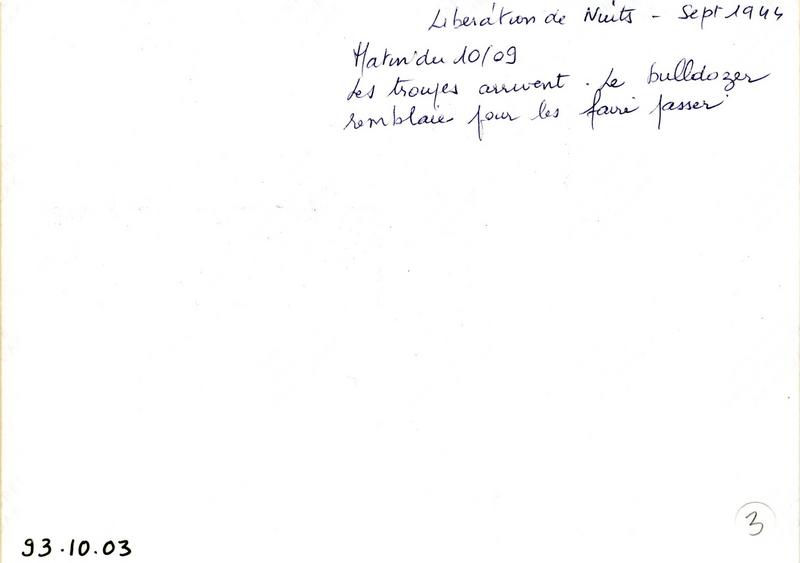 Libération de Nuits - Sept 1944
Matin du 10/09
Les troupes arrivent. Le bulldozer
remblaie pour les faire passer
3
93.10.03